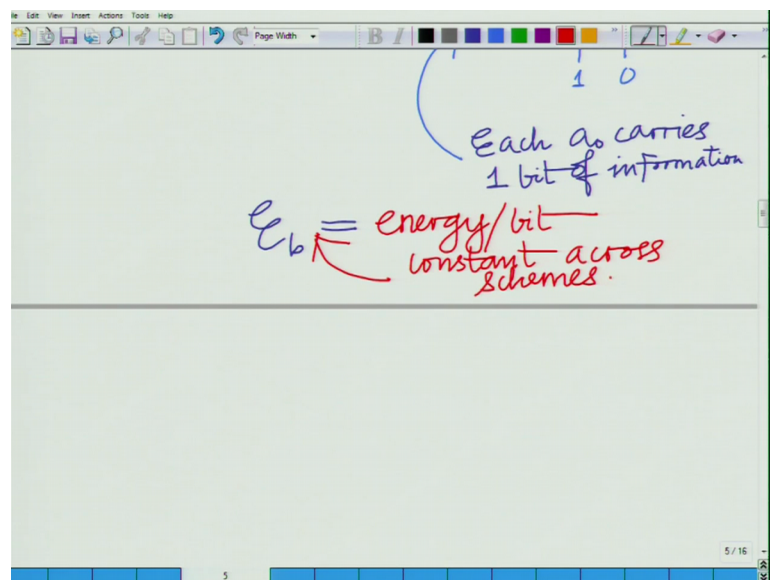 Edit View Insert Actions Tools Help
Page Width
B I
1 0
Each a₀ carries
1 bit of information
ξb = energy/bit
constant across
schemes.
5/16
5